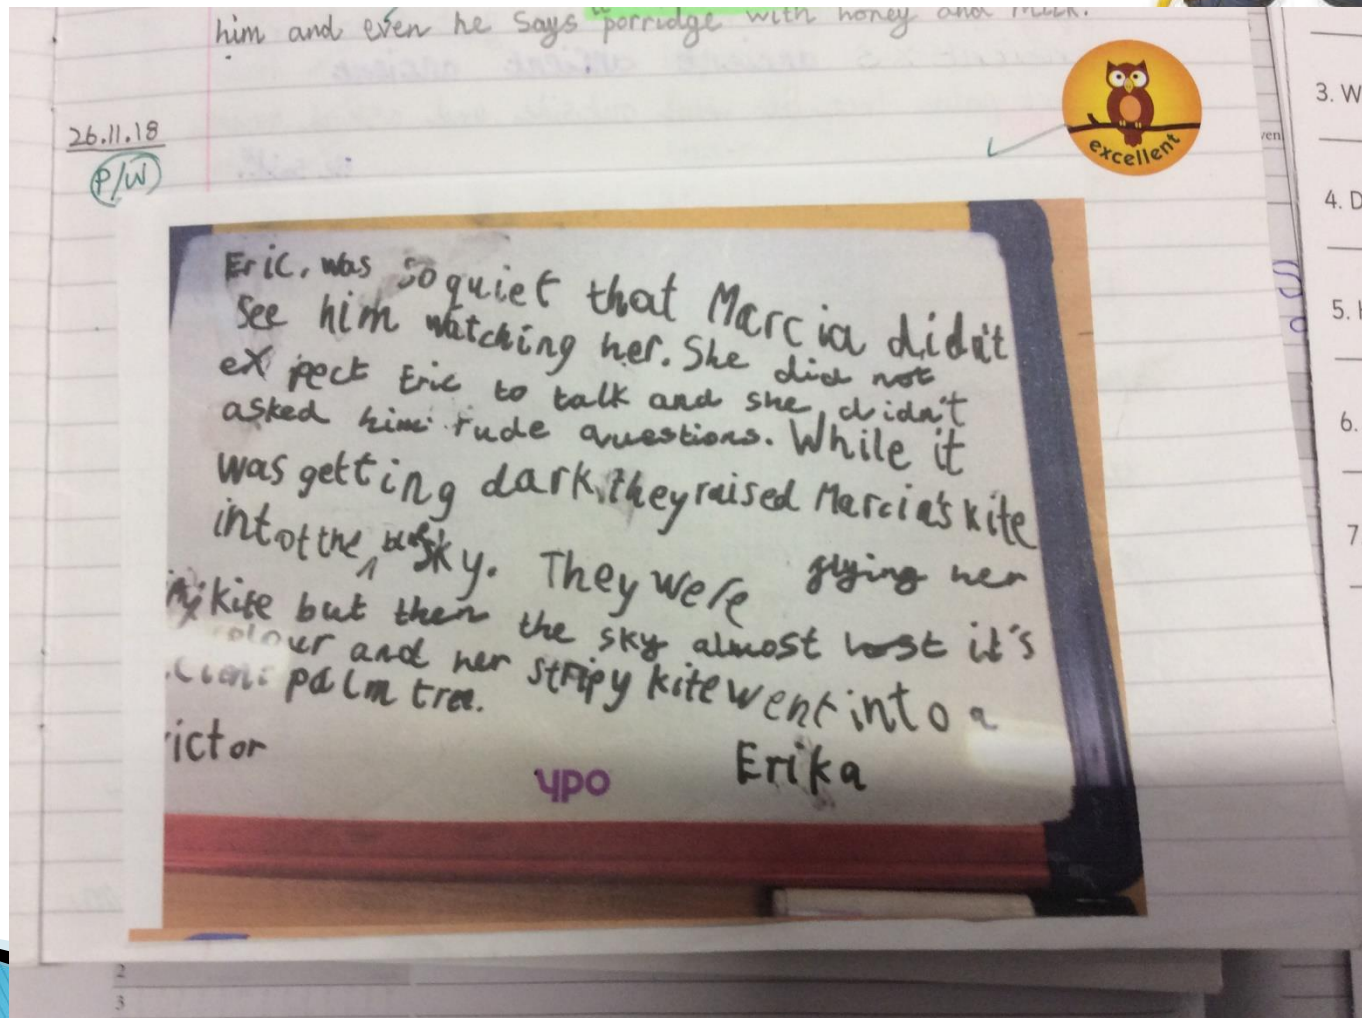 him and even he says "porridge with honey and milk.
26.11.18
P/W
excellent
3. W
4. D
5.
6.
7
Eric, was so quiet that Marcia didn't
see him watching her. She did not
expect Eric to talk and she didn't
asked him rude questions. While it
was getting dark, they raised Marcia's kite
into the blue sky. They were flying her
kite but then the sky almost lost it's
and her stripy kite went into a
palm tree.
ictor
Erika
ypo
2
3